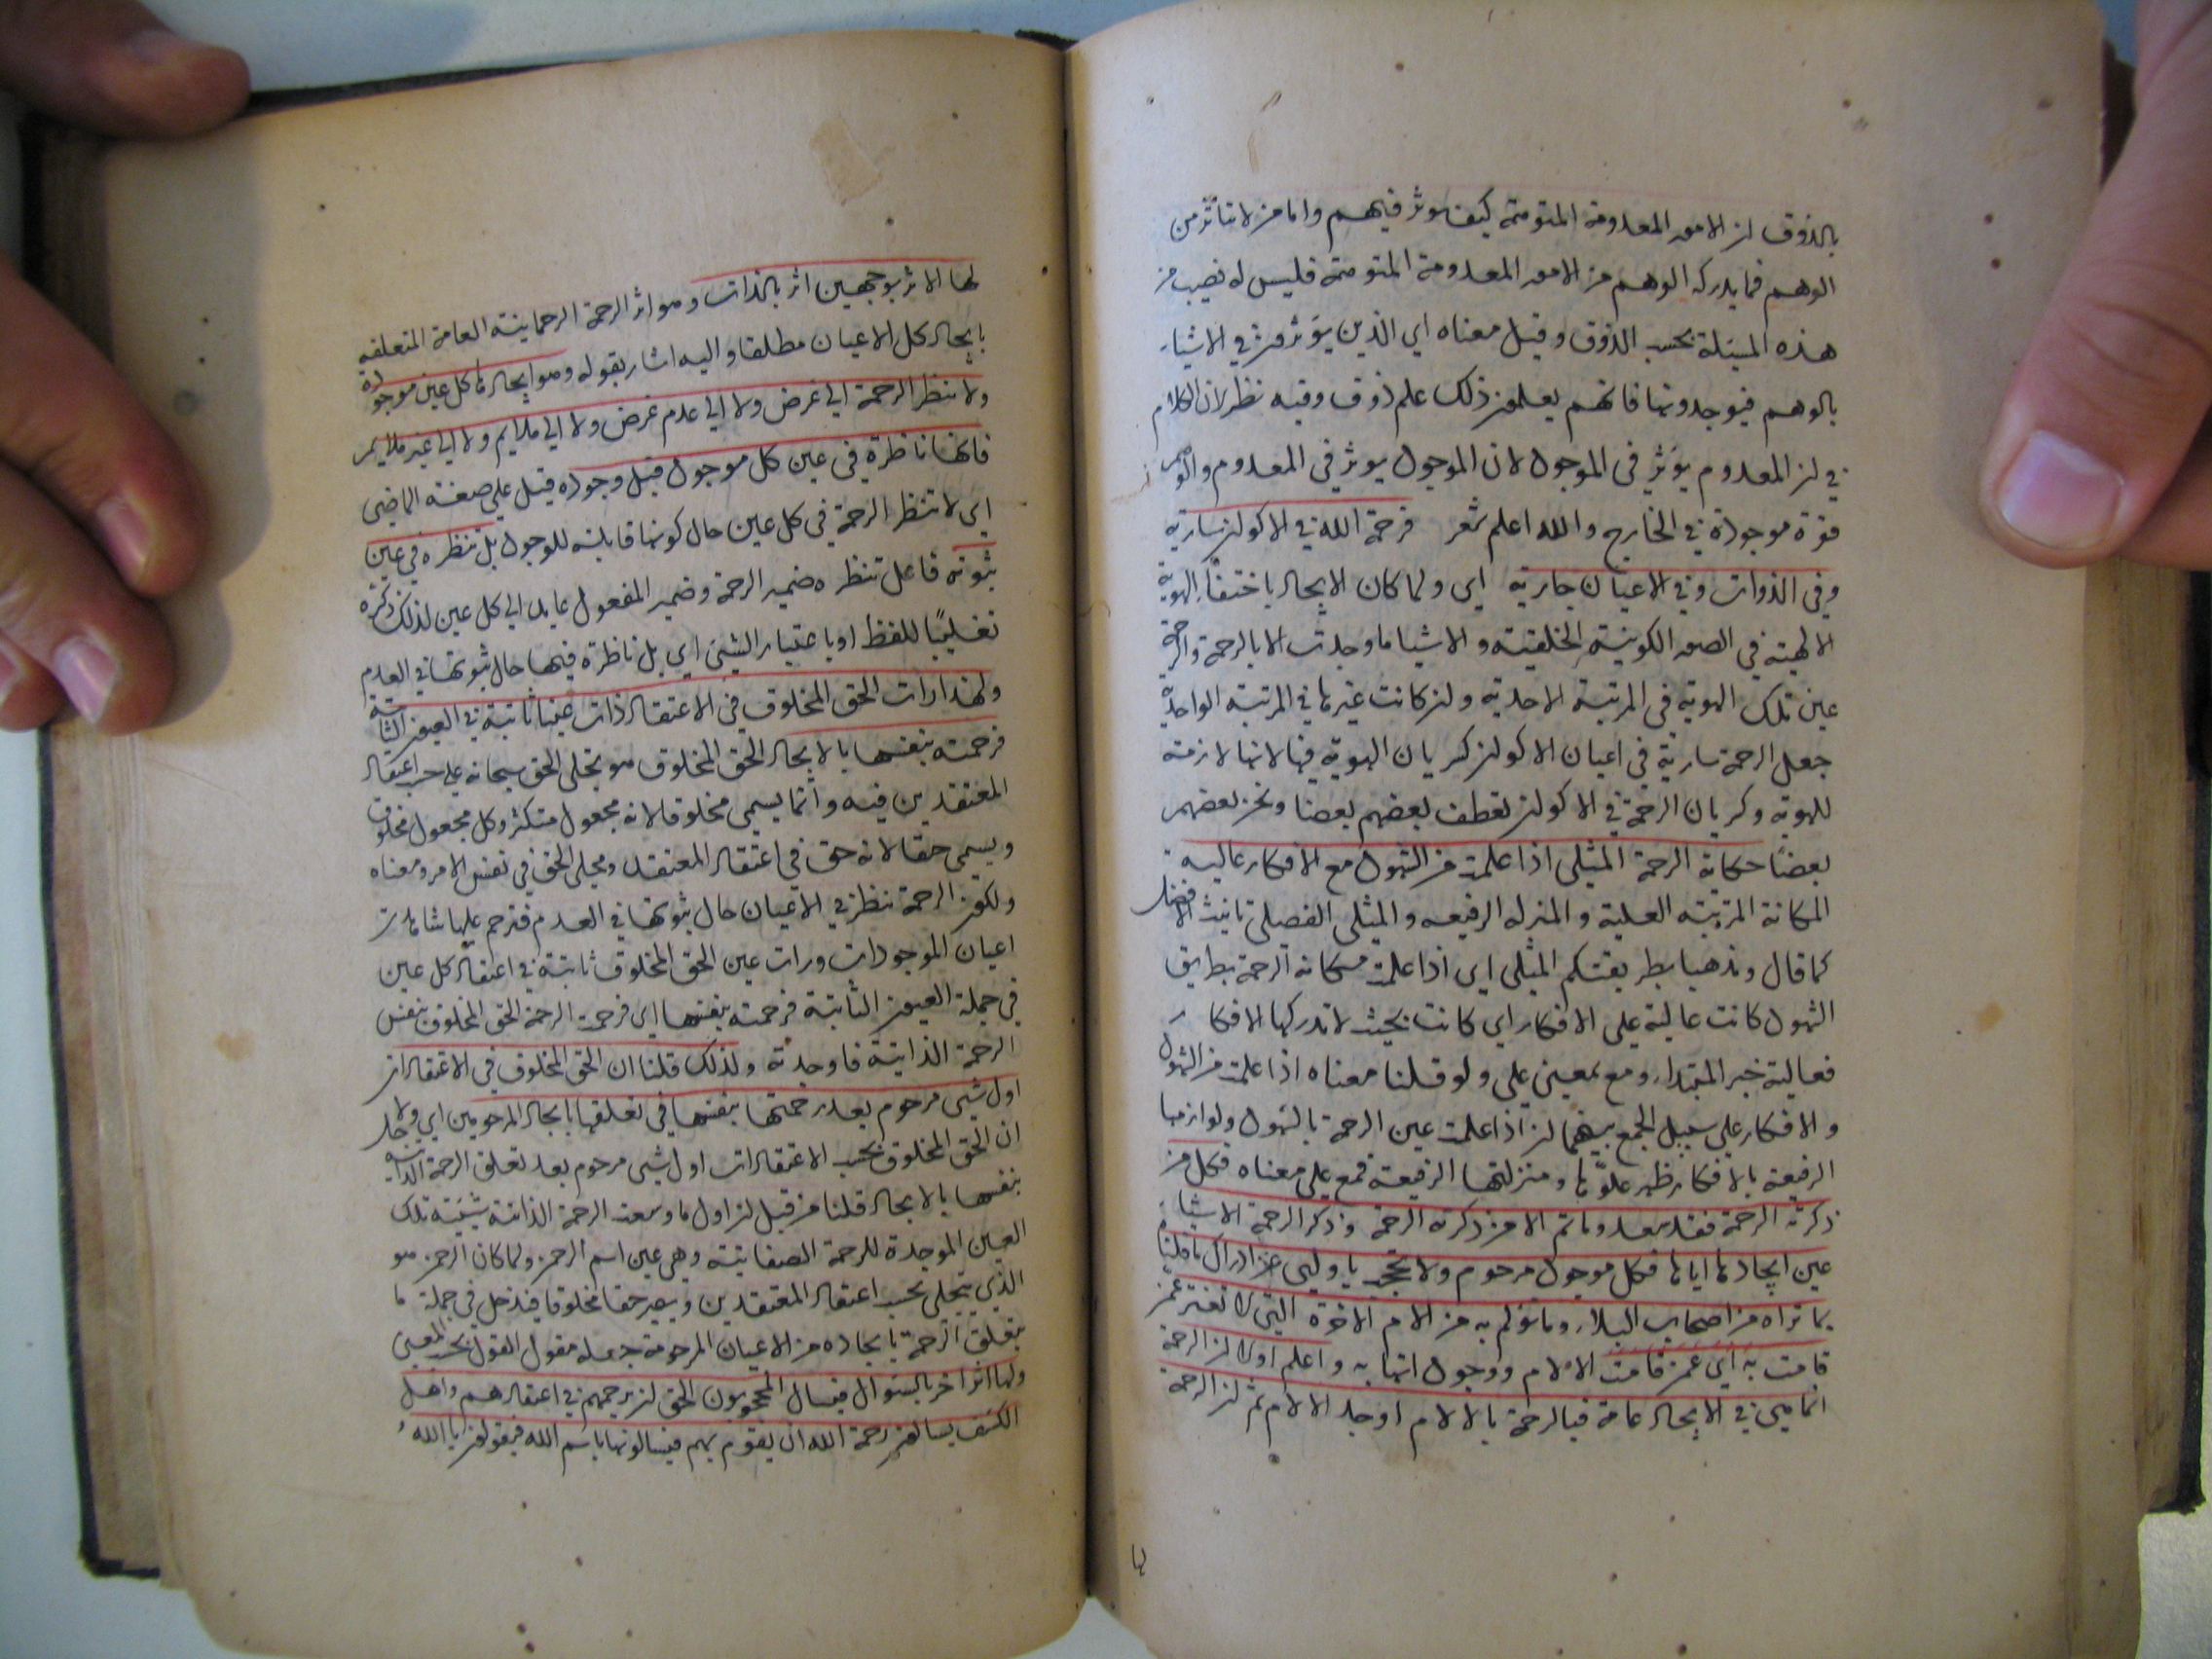 بالذوق ان الامور المعدومة المتوهمة كيف يوثر فيهم واما من لا يتأثر من
الوهم فما يدركه الوهم من الامور المعدومة المتوهمة فليس له نصيب من
هذه المسئلة بحسب الذوق وقيل معناه اي الذين يؤثرون في الاشياء
بالوهم فيوجدونها فانهم يعلمون ذلك علم ذوق وفيه نظر لان الكلام
في ان المعدوم يؤثر في الموجود لان الموجود يوثر في المعدوم والوهم
قوة موجودة في الخارج والله اعلم شعر فرحمة الله في الاكوان سارية
وفي الذوات وفي الاعيان جارية اي ولما كان الايجاد باختفاء الهوية
الالهية في الصور الكونية الخلقية والاشيا ما وجدت الا بالرحمة والرحمة
عين تلك الهوية في المرتبة الاحدية وان كانت غيرها في المرتبة الواحدية
جعل الرحمة سارية في اعيان الاكوان كسريان الهوية فيها لانها لازمة
للهوية وكسريان الرحمة في الاكوان تعطف بعضهم بعضا وتحنن بعضهم
بعضا مكانة الرحمة المثلى اذا علمت من الشهود مع الافكار عالية
المكانة المرتبة العلية والمنزلة الرفيعه والمثلى الفضلى تانيث الافضل
كما قال ويذهبا بطريقتكم المثلى اي اذا علمت مكانة الرحمة بطريق
الشهود كانت عالية على الافكار اي كانت بحيث لا تدركها الافكار
فعالية خبر المبتداء ومع بمعنى على ولو قلنا معناه اذا علمت من الشهود
والافكار على سبيل الجمع بينهما ان اذا علمت عين الرحمة بالشهود ولوازمها
الرفيعة بالافكار ظهر علوها ومنزلتها الرفيعة فمع على معناه فكل من
ذكرته الرحمة فقد سعد وما ثم الا من ذكرته الرحمة وذكر الرحمة الاشياء
عين ايجادها اياها فكل موجود مرحوم ولا تحجب يا وليي عن ادراك ما قلناه
بما تراه من اصحاب البلاء وما تؤمن به من الام الاخرة التي لا تفتر عمن
قامت به اي عمن قامت الآلام ووجود انها به واعلم اولا ان الرحمة
انما هي في الايجاد عامة فبالرحمة بالالام اوجد الالام ثم ان الرحمة
لها
لها الاثر بوجهين اثر بالذات وهو اثر الرحمة الرحمانية العامة المتعلقه
بايجاد كل الاعيان مطلقا واليه اشار بقوله وهو ايجادها كل عين موجودة
ولا تنظر الرحمة الى غرض ولا الى عدم غرض ولا الى ملايم ولا الى غير ملايم
فانها ناظرة في عين كل موجود قبل وجوده قيل على صيغة الماضي
اي لا تنظر الرحمة في كل عين حال كونها قابلة للوجود بل تنظره في عين
ثبوته فاعل تنظره ضمير الرحمة وضمير المفعول عايد الى كل عين لذلك ذكره
تغليبًا للفظ او باعتبار الشيئ اي بل ناظرة فيها حال ثبوتها في العدم
ولهذا رات الحق المخلوق في الاعتقاد ذات عينا ثابتة في العيون الثابتة
فرحمته بنفسها بالايجاد الحق المخلوق هو تجلى الحق سبحانه على حسب اعتقاد
المعتقدين فيه وانما يسمى مخلوقا لانه مجعول متكثر وكل مجعول مخلوق
ويسمى حقا لانه حق في اعتقاد المعتقد ومجلى الحق في نفس الامر ومعناه
ولكون الرحمة تنظر في الاعيان حال ثبوتها في العدم فترحم عليها شاهدت
اعيان الموجودات ورات عين الحق المخلوق ثابتة في اعتقاد كل عين
في جملة العيون الثابتة فرحمته بنفسها اي فرحمت الرحمة الحق المخلوق بنفس
الرحمة الذاتية فاوجدته ولذلك قلنا ان الحق المخلوق في الاعتقادات
اول شيى مرحوم بعد رحمتها بنفسها في تعلقها بايجاد المرحومين اي ولاجل
ان الحق المخلوق بحسب الاعتقادات اول شيى مرحوم بعد تعلق الرحمة الذاتية
بنفسها بالايجاد قلنا من قبل ان اول ما وسعت الرحمة الذاتية شيئية تلك
العين الموجدة للرحمة الصفاتية وهي عين اسم الرحمن ولما كان الرحمن هو
الذي يتجلى بحسب اعتقاد المعتقدين ويصير حقا مخلوقا فيدخل في جملة ما
يتعلق الرحمة بايجاده من الاعيان المرحومة جعله مقول القول بحسب المعنى
ولها اثر اخر بالسؤال فيسال المحجوبون الحق ان يرحمهم في اعتقادهم واهل
الكشف يسالون رحمة الله ان يقوم بهم فيسالونها باسم الله فيقولون يا الله